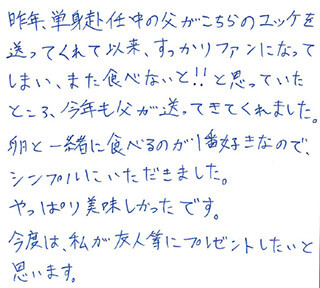 昨年、単身赴任中の父がこちらのユッケを
送ってくれて以来、すっかりファンになって
しまい、また食べないと!!と思っていた
ところ、今年も父が送ってきてくれました。
卵と一緒に食べるのが1番好きなので、
シンプルにいただきました。
やっぱり美味しかったです。
今度は、私が友人等にプレゼントしたいと
思います。